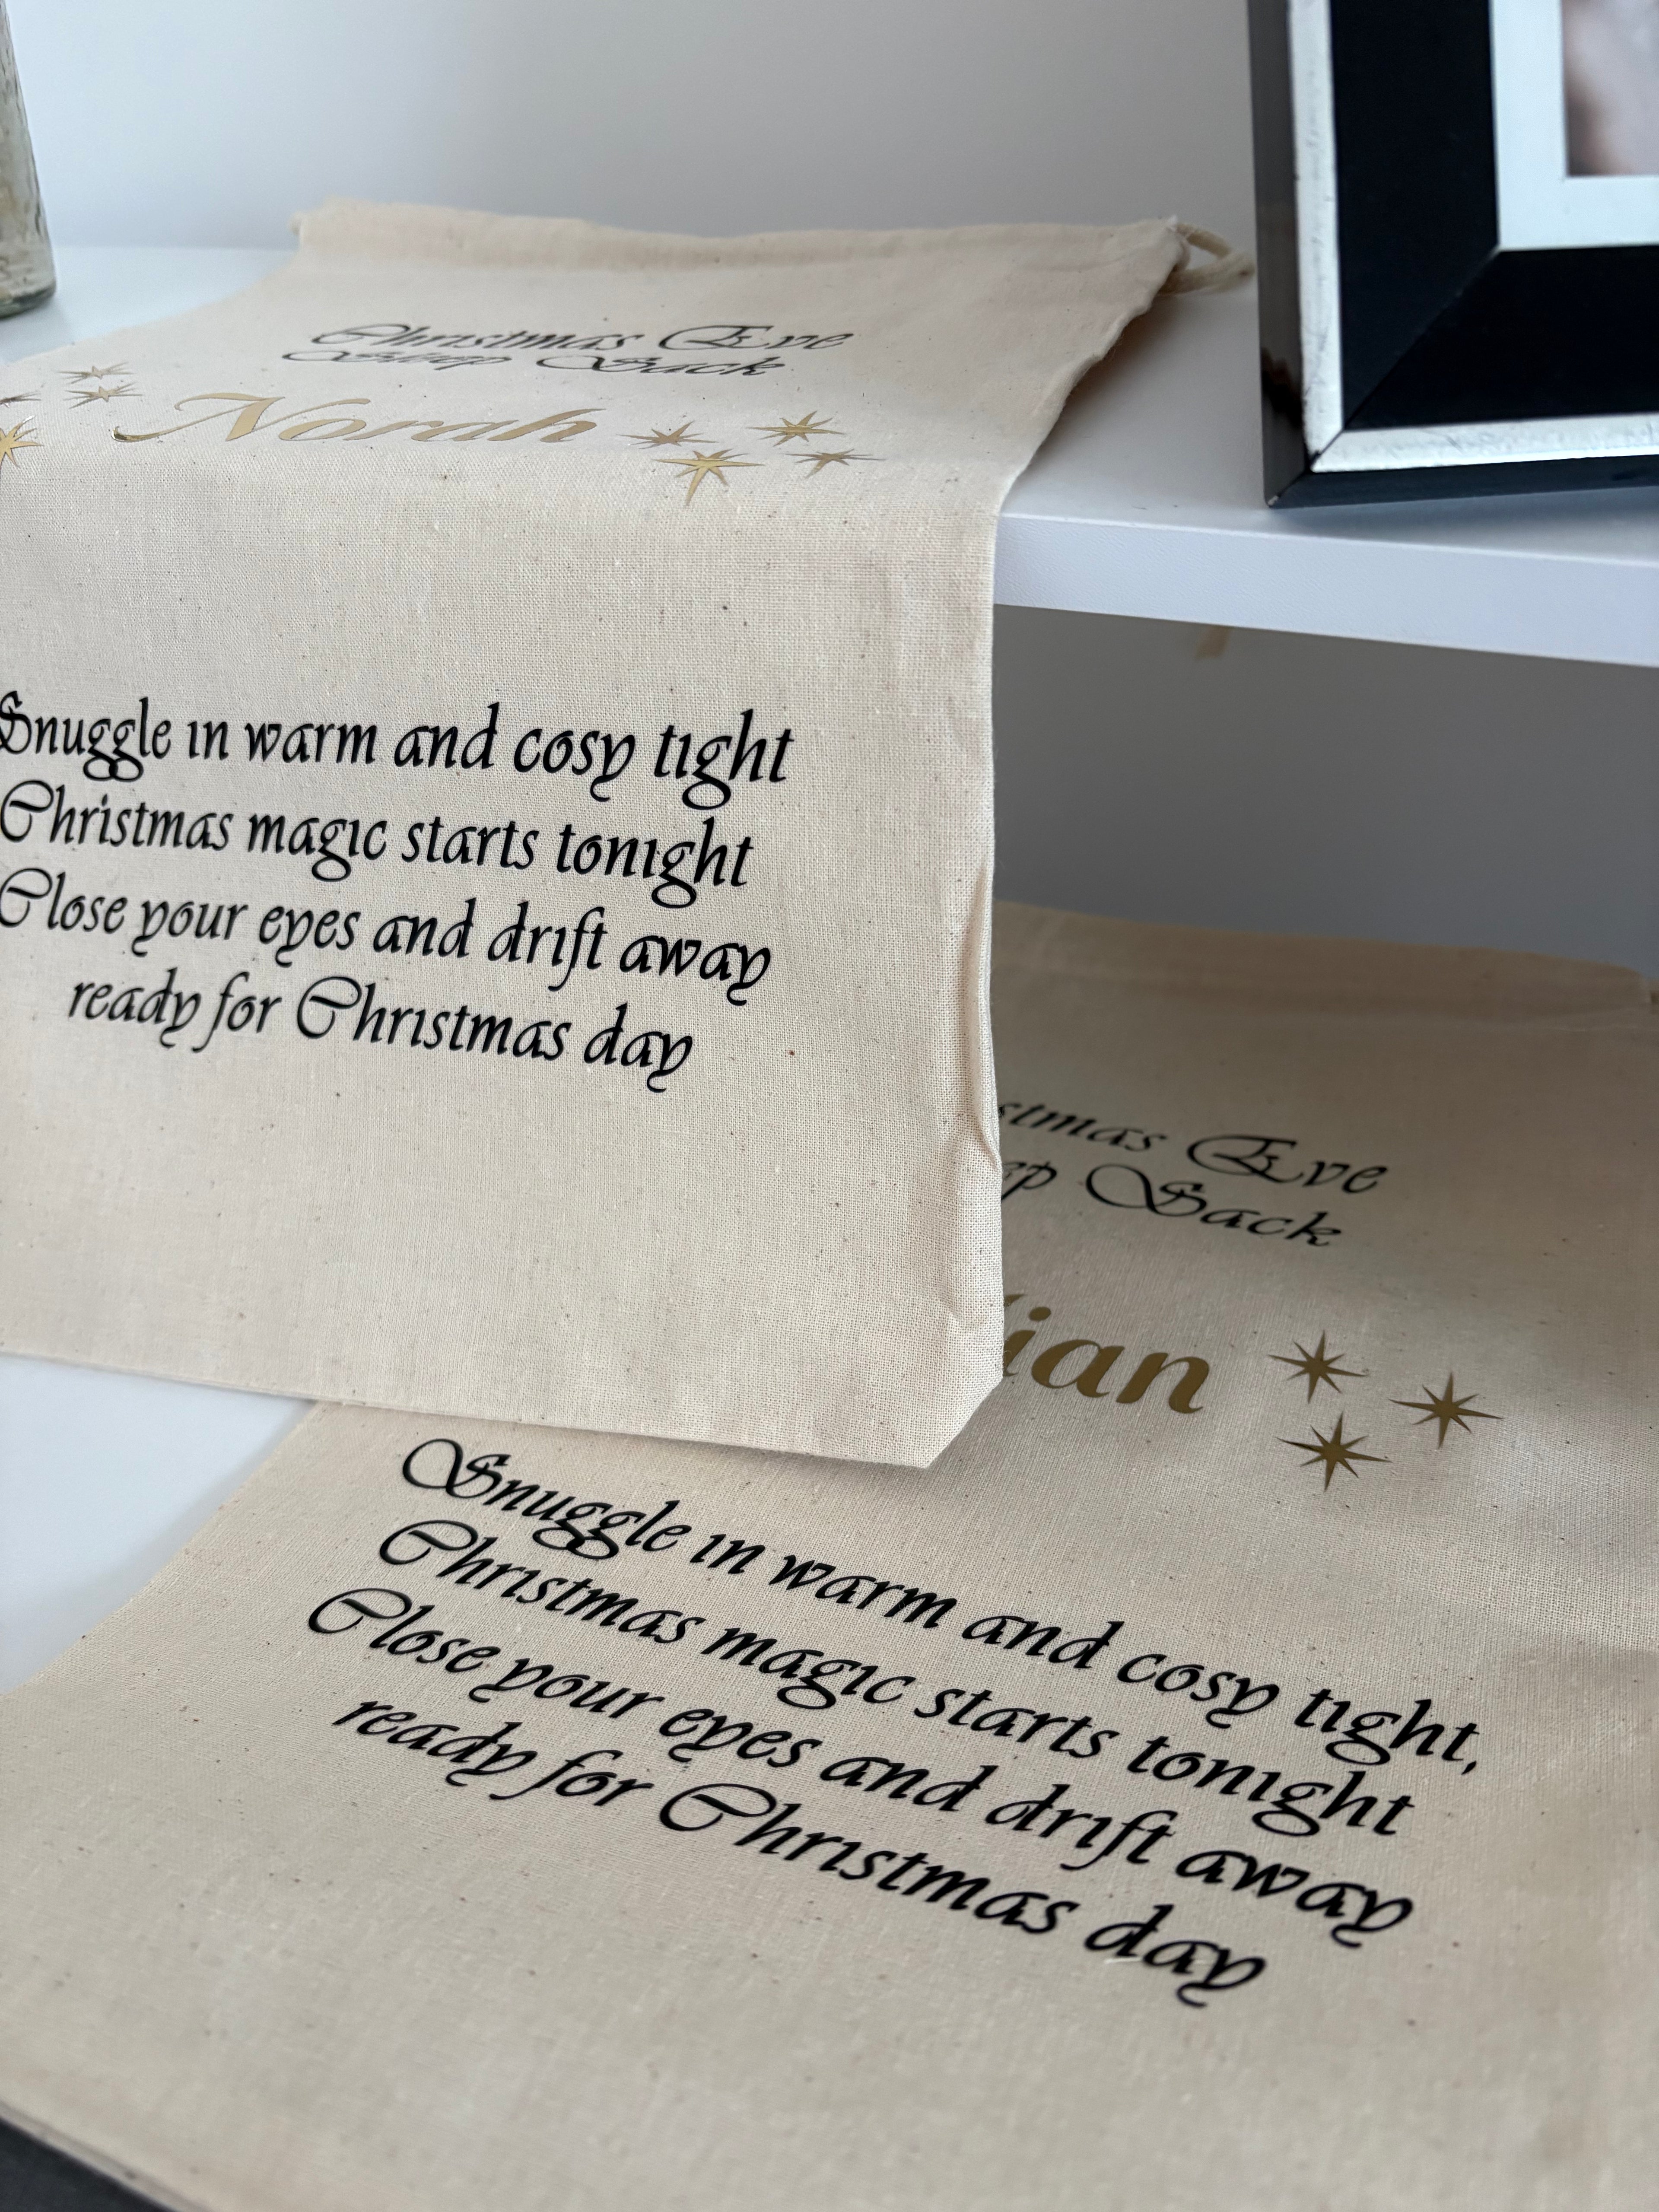 Christmas Eve
Sleep Sack
Norah
Snuggle in warm and cosy tight
Christmas magic starts tonight
Close your eyes and drift away
ready for Christmas day
stmas Eve
ep Sack
ian
Snuggle in warm and cosy tight,
Christmas magic starts tonight
Close your eyes and drift away
ready for Christmas day